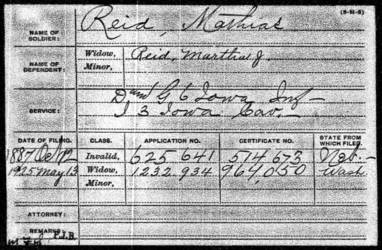 (3-11-8)
NAME OF SOLDIER: Reid, Mathias
NAME OF DEPENDENT: Widow, Reid, Martha J
Minor,
SERVICE: D and G 6 Iowa Inf-
I 3 Iowa Cav.-
DATE OF FILING. CLASS. APPLICATION NO. CERTIFICATE NO. STATE FROM WHICH FILED.
1887 Invalid, 625 641 574 673
1925 May 13 Widow, 1232 934 964,050 Wash
Minor,
ATTORNEY:
REMARKS: P.J.B.